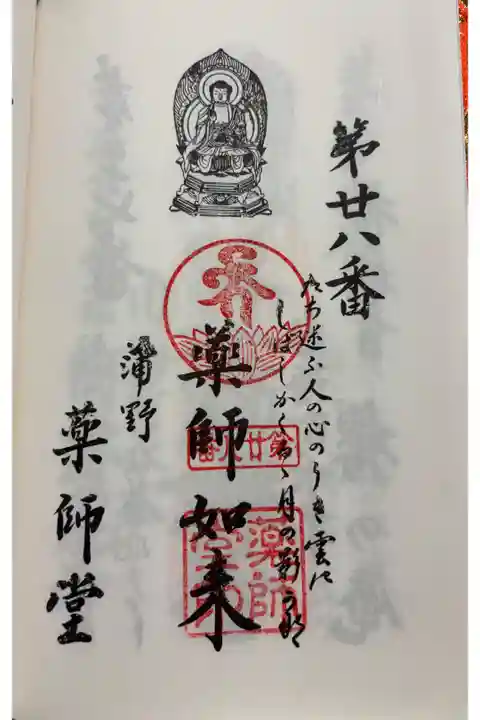 第廿八番
たち迷ふ人の心のうき雲に
しばしかくるゝ月の影かな
薬師如来
第廿八番
薬師
蒲野
薬師堂